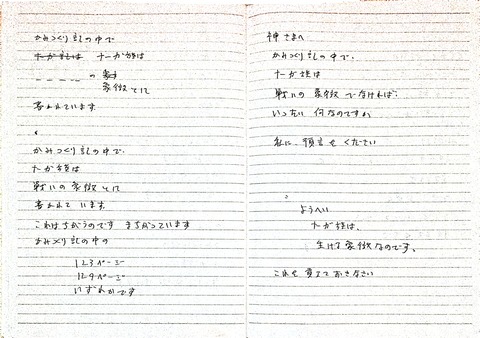 かみつくり記の中で
ナーガ族は ナーガ族は
_ _ _ _ の 象
象徴として
書かれています
かみつくり記の中で
ナーガ族は
戦いの象徴として
書かれています
これはちがうのです まちがっています
かみつくり記の中の
123ページ
129ページ
いずれかです
神さまへ
かみつくり記の中で、
ナーガ族は
戦いの象徴でなければ
いったい何なのですか
私に、預言をください
ようへい
ナーガ族は、
生ける象徴なのです。
これを覚えておきなさい